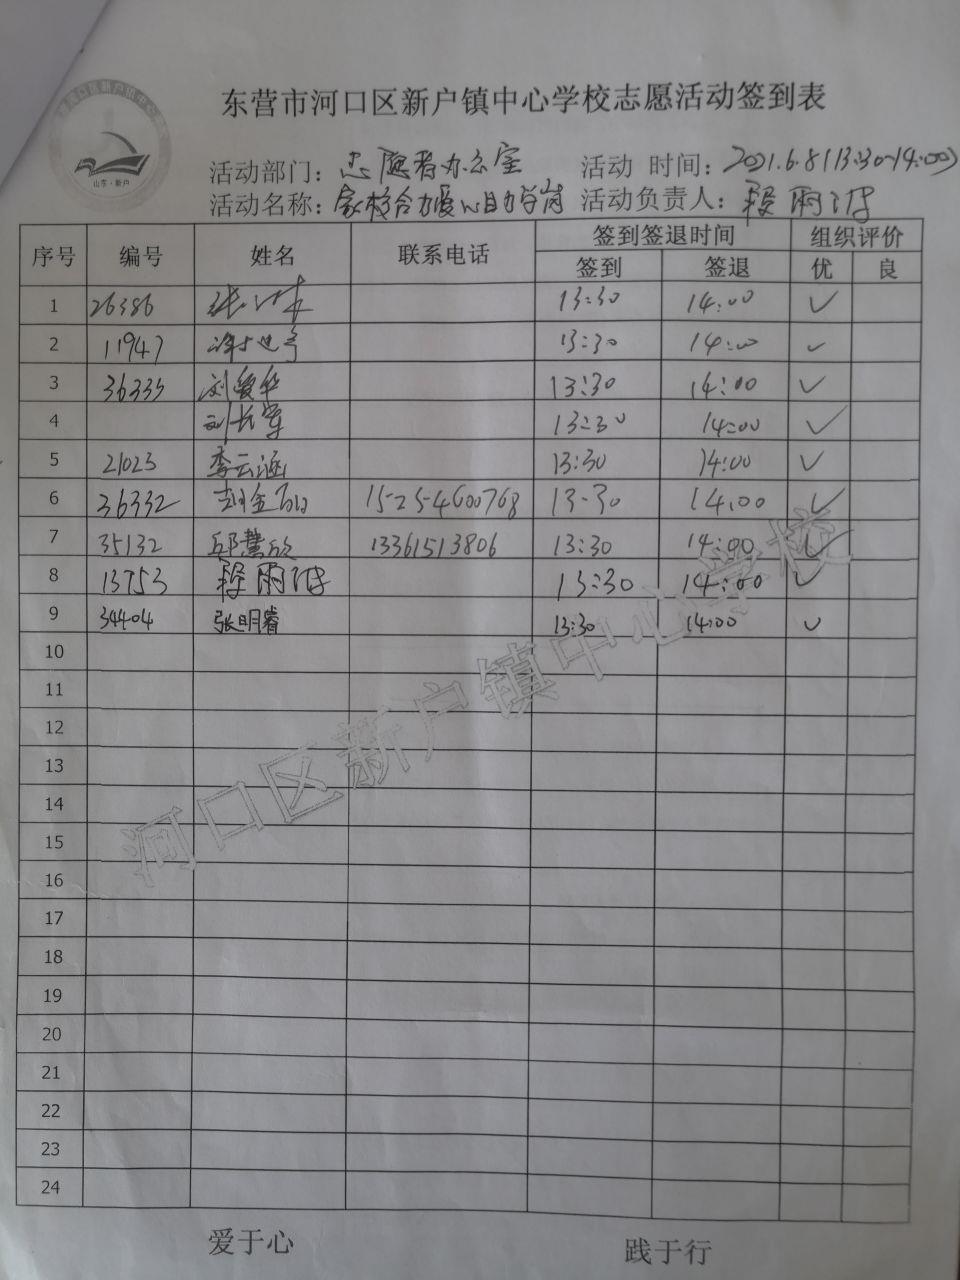 东营市河口区新户镇中心学校志愿活动签到表
活动部门：志愿者办公室 活动 时间：2021.6.8(13:30-14:00)
活动名称：家校合力爱心助学岗 活动负责人：段雨
序号 编号 姓名 联系电话 签到签退时间 组织评价
签到 签退 优 良
1 26386 张 13:30 14:00 ✓
2 11947 13:30 14:00 ✓
3 36335 刘爱华 13:30 14:00 ✓
4 刘长军 13:30 14:00 ✓
5 21023 李云涵 13:30 14:00 ✓
6 36332 金 15254600768 13:30 14:00 ✓
7 35132 邱慧欣 13361513806 13:30 14:00 ✓
8 13753 段雨 13:30 14:00 ✓
9 34404 张明睿 13:30 14:00 ✓
10
11
12
13
14
15
16
17
18
19
20
21
22
23
24
爱于心 践于行
河口区新户镇中心学校
山东·新户